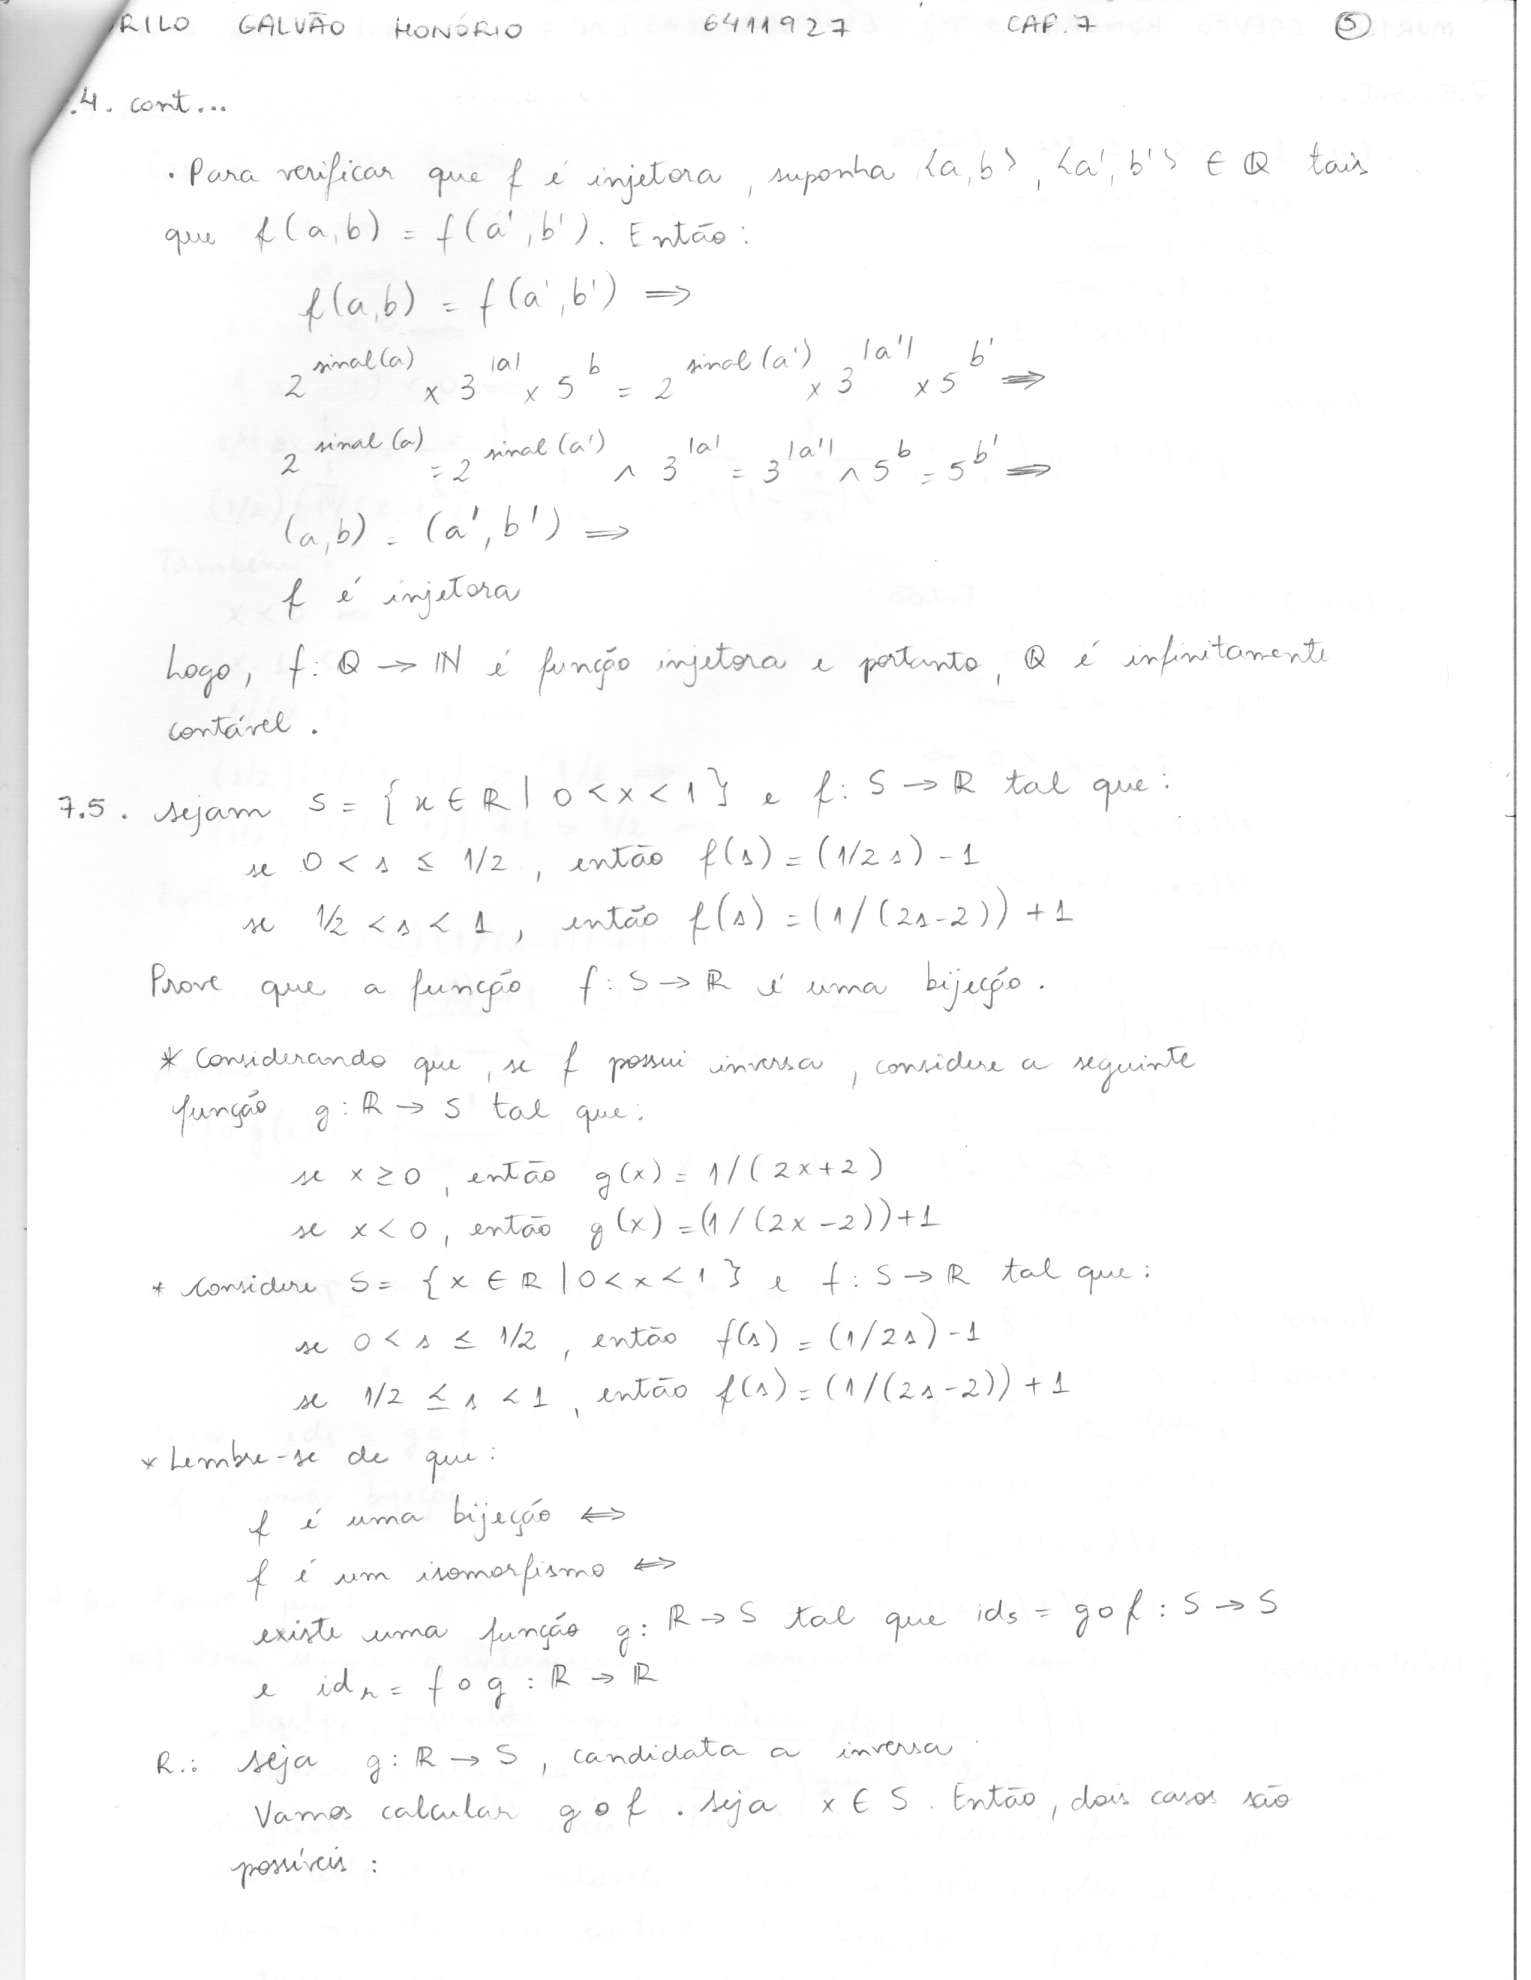 RILO GALVÃO HONÓRIO 6411927 CAP. 7 5
.4. cont...
• Para verificar que f é injetora, suponha <a,b>, <a',b'> ∈ Q tais
que f(a,b) = f(a',b'). Então:
f(a,b) = f(a',b') ⇒
2^sinal(a) × 3^|a| × 5^b = 2^sinal(a') × 3^|a'| × 5^b' ⇒
2^sinal(a) = 2^sinal(a') ∧ 3^|a| = 3^|a'| ∧ 5^b = 5^b' ⇒
(a,b) = (a',b') ⇒
f é injetora
Logo, f: Q → IN é função injetora e portanto, Q é infinitamente
contável.
7.5. Sejam S = {x ∈ R | 0 < x < 1} e f: S → R tal que:
se 0 < s ≤ 1/2, então f(s) = (1/2s) - 1
se 1/2 < s < 1, então f(s) = (1/(2s-2)) + 1
Prove que a função f: S → R é uma bijeção.
* Considerando que, se f possui inversa, considere a seguinte
função g: R → S tal que:
se x ≥ 0, então g(x) = 1/(2x+2)
se x < 0, então g(x) = (1/(2x-2)) + 1
* Considere S = {x ∈ R | 0 < x < 1} e f: S → R tal que:
se 0 < s ≤ 1/2, então f(s) = (1/2s) - 1
se 1/2 ≤ s < 1, então f(s) = (1/(2s-2)) + 1
* Lembre-se de que:
f é uma bijeção ⇔
f é um isomorfismo ⇔
existe uma função g: R → S tal que id_s = g o f : S → S
e id_r = f o g : R → R
R.: Seja g: R → S, candidata a inversa.
Vamos calcular g o f. Seja x ∈ S. Então, dois casos são
possíveis: